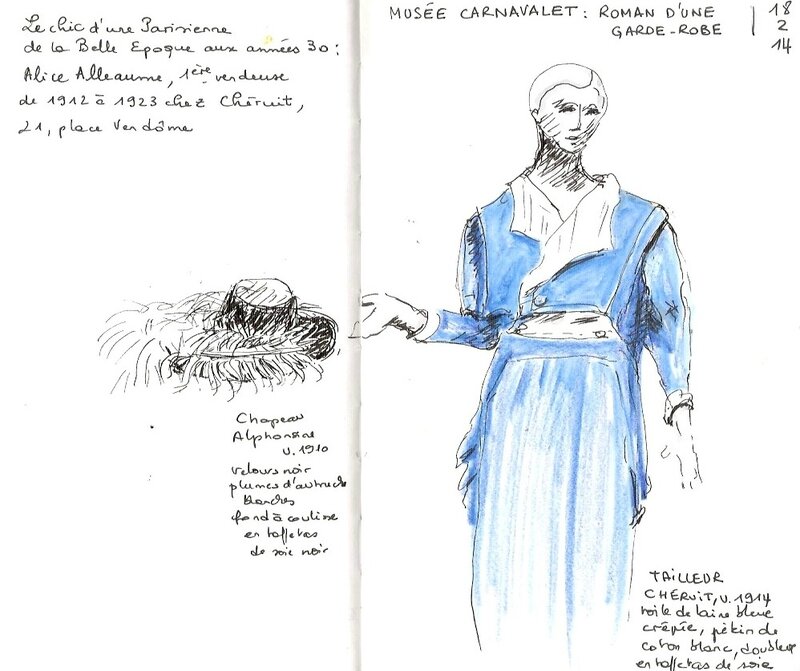 Le chic d'une Parisienne
de la Belle Epoque aux années 30 :
Alice Alleaume, 1ère vendeuse
de 1912 à 1923 chez Chéruit,
21, place Vendôme
MUSÉE CARNAVALET : ROMAN D'UNE
GARDE-ROBE
18
2
14
Chapeau
Alphonsine
v. 1910
velours noir
plumes d'autruche
blanches
fond à coulisse
en taffetas
de soie noir
TAILLEUR
CHÉRUIT, v. 1914
voile de laine bleue
crêpée, pékin de
coton blanc, doublure
en taffetas de soie